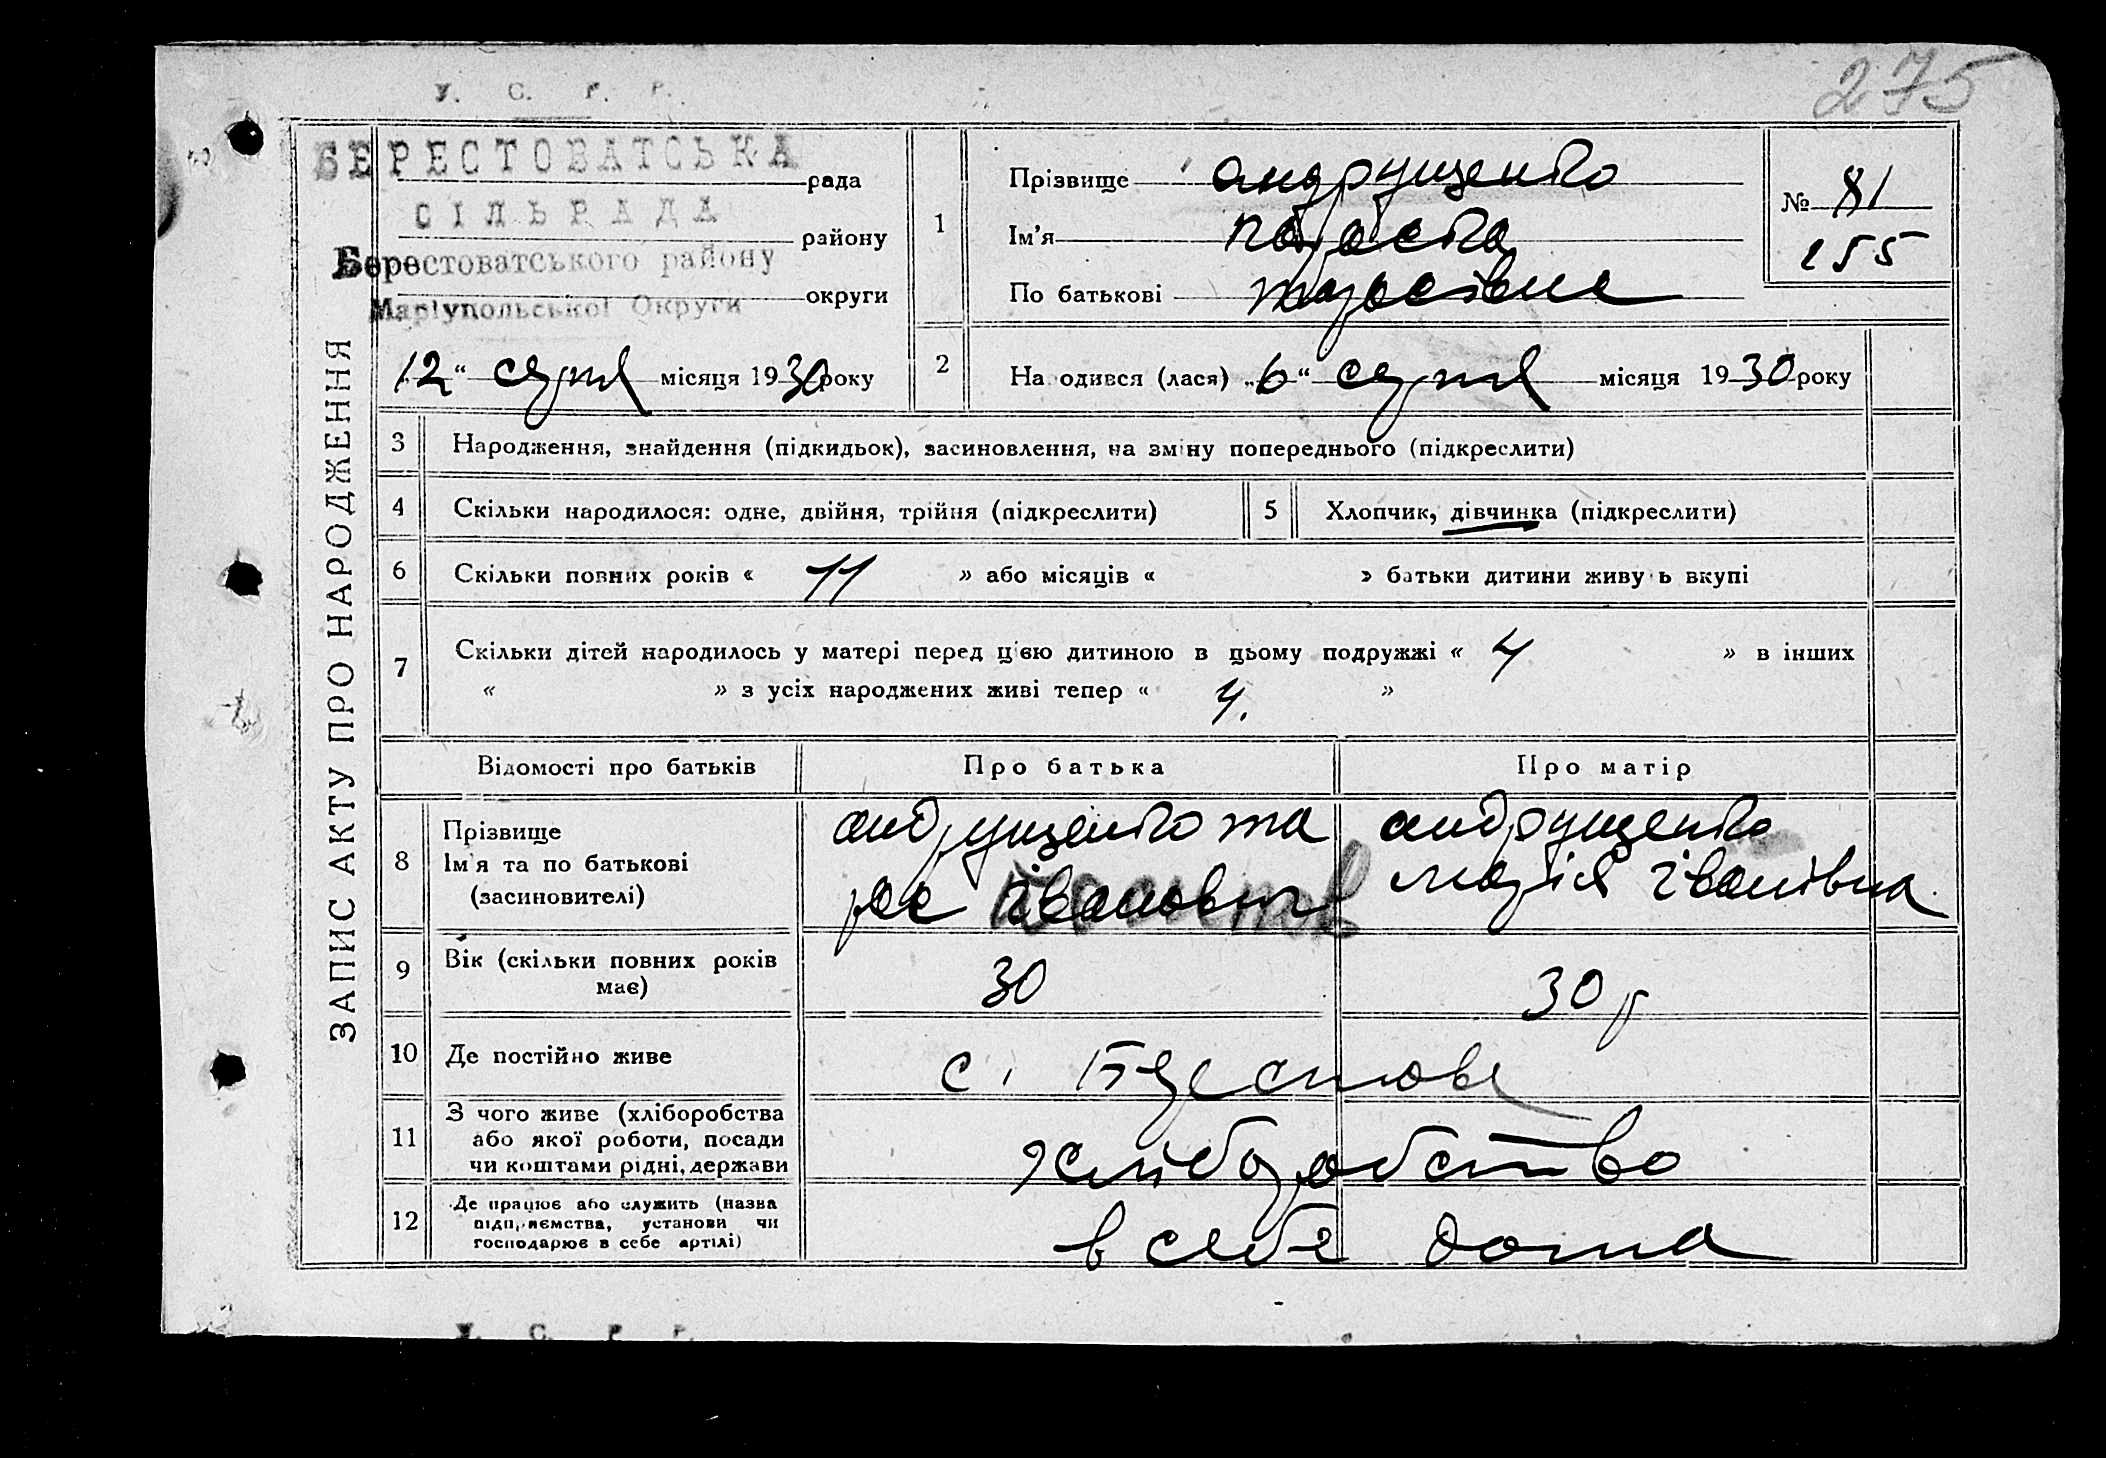 275
У. С. Р. Р.
БЕРЕСТОВАТСЬКА рада
СІЛЬРАДА району
Берестоватського району
Маріупольської Округи округи
"12" серпня місяця 1930 року
ЗАПИС АКТУ ПРО НАРОДЖЕННЯ
1 Прізвище Андрущенко
Ім'я
По батькові Тарасівна
№ 81
155
2 Народився (лася) „6“ серпня місяця 1930 року
3 Народження, знайдення (підкидьок), засиновлення, на зміну попереднього (підкреслити)
4 Скільки народилося: одне, двійня, трійня (підкреслити) 5 Хлопчик, дівчинка (підкреслити)
6 Скільки повних років « 11 » або місяців « » батьки дитини живуть вкупі
7 Скільки дітей народилось у матері перед цією дитиною в цьому подружжі « 4 » в інших
« » з усіх народжених живі тепер « 4. »
Відомості про батьків Про батька Про матір
8 Прізвище
Ім'я та по батькові
(засиновителі)
андрущенко та
рас іванович
андрущенко
марія іванівна
9 Вік (скільки повних років
має)
30 30 р
10 Де постійно живе с.
11 З чого живе (хліборобства
або якої роботи, посади
чи коштами рідні, держави
хліборобство
12 Де працює або служить (назва
підприємства, установи чи
господарює в себе артілі)
в себе дома
У. С. Р. Р.